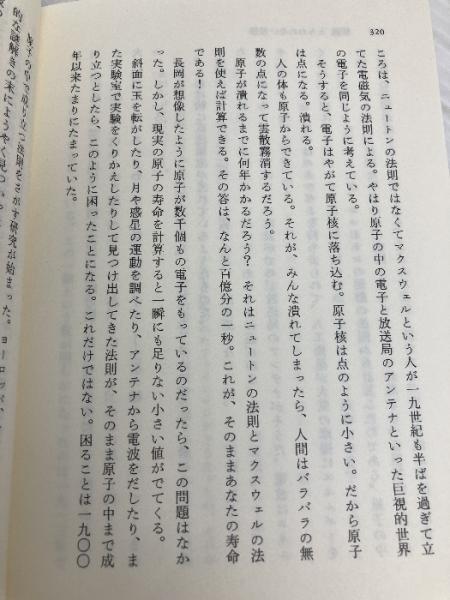 320
ころは、ニュートンの法則ではなくてマクスウェルという人が一九世紀も半ばを過ぎて立
てた電磁気の法則による。やはり原子の中の電子と放送局のアンテナといった巨視的世界
の電子を同じように考えている。
そうすると、電子はやがて原子核に落ち込む。原子核は点のように小さい。だから原子
は点になる。潰れる。
人の体も原子からできている。それが、みんな潰れてしまったら、人間はバラバラの無
数の点になって雲散霧消するだろう。
原子が潰れるまでに何年かかるだろう？ それはニュートンの法則とマクスウェルの法
則を使えば計算できる。その答は、なんと百億分の一秒。これが、そのままあなたの寿命
である！
長岡が想像したように原子が数千個もの電子をもっているのだったら、この問題はなか
った。しかし、現実の原子の寿命を計算すると一瞬にも足りない小さい値がでてくる。
斜面に玉を転がしたり、月や惑星の運動を調べたり、アンテナから電波をだしたり、ま
た実験室で実験をくりかえしたりして見つけ出してきた法則が、そのまま原子の中まで成
り立つとしたら、このように困ったことになる。これだけではない。困ることは一九〇〇
年以来たまりにたまっていた。
の中で成り立つ法則をさがす研究が始まった。ヨーロッパ、
的な謎解きの末にようやく見つかっ